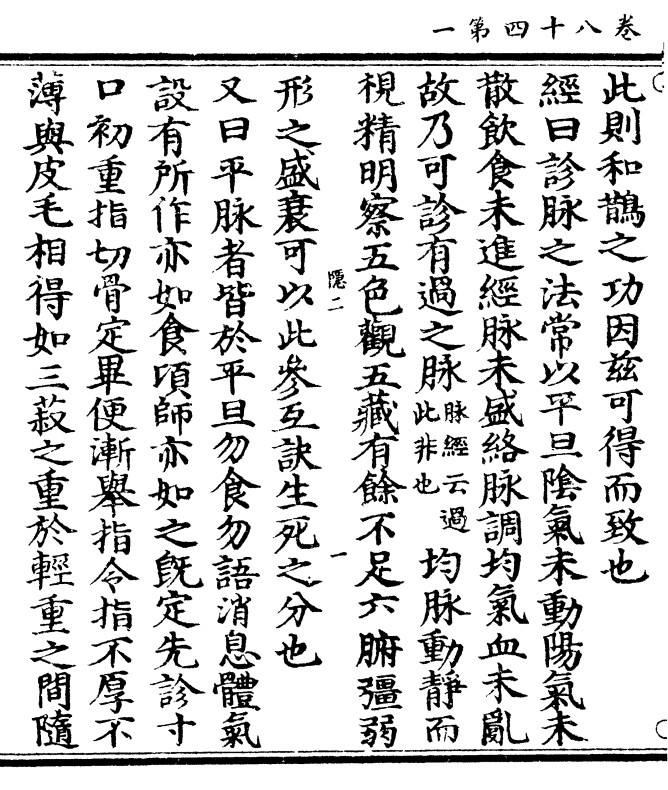 卷八十四第一
此則和鵲之功因茲可得而致也
經曰診脉之法常以平旦陰氣未動陽氣未
散飲食未進經脉未盛絡脉調均氣血未亂
故乃可診有過之脉脉經云過此非也均脉動靜而
視精明察五色觀五藏有餘不足六腑彊弱
隱二
一
形之盛衰可以此參互訣生死之分也
又曰平脉者皆於平旦勿食勿語消息體氣
設有所作亦如食頃師亦如之旣定先診寸
口初重指切骨定畢便漸舉指令指不厚不
薄與皮毛相得如三菽之重於輕重之間隨